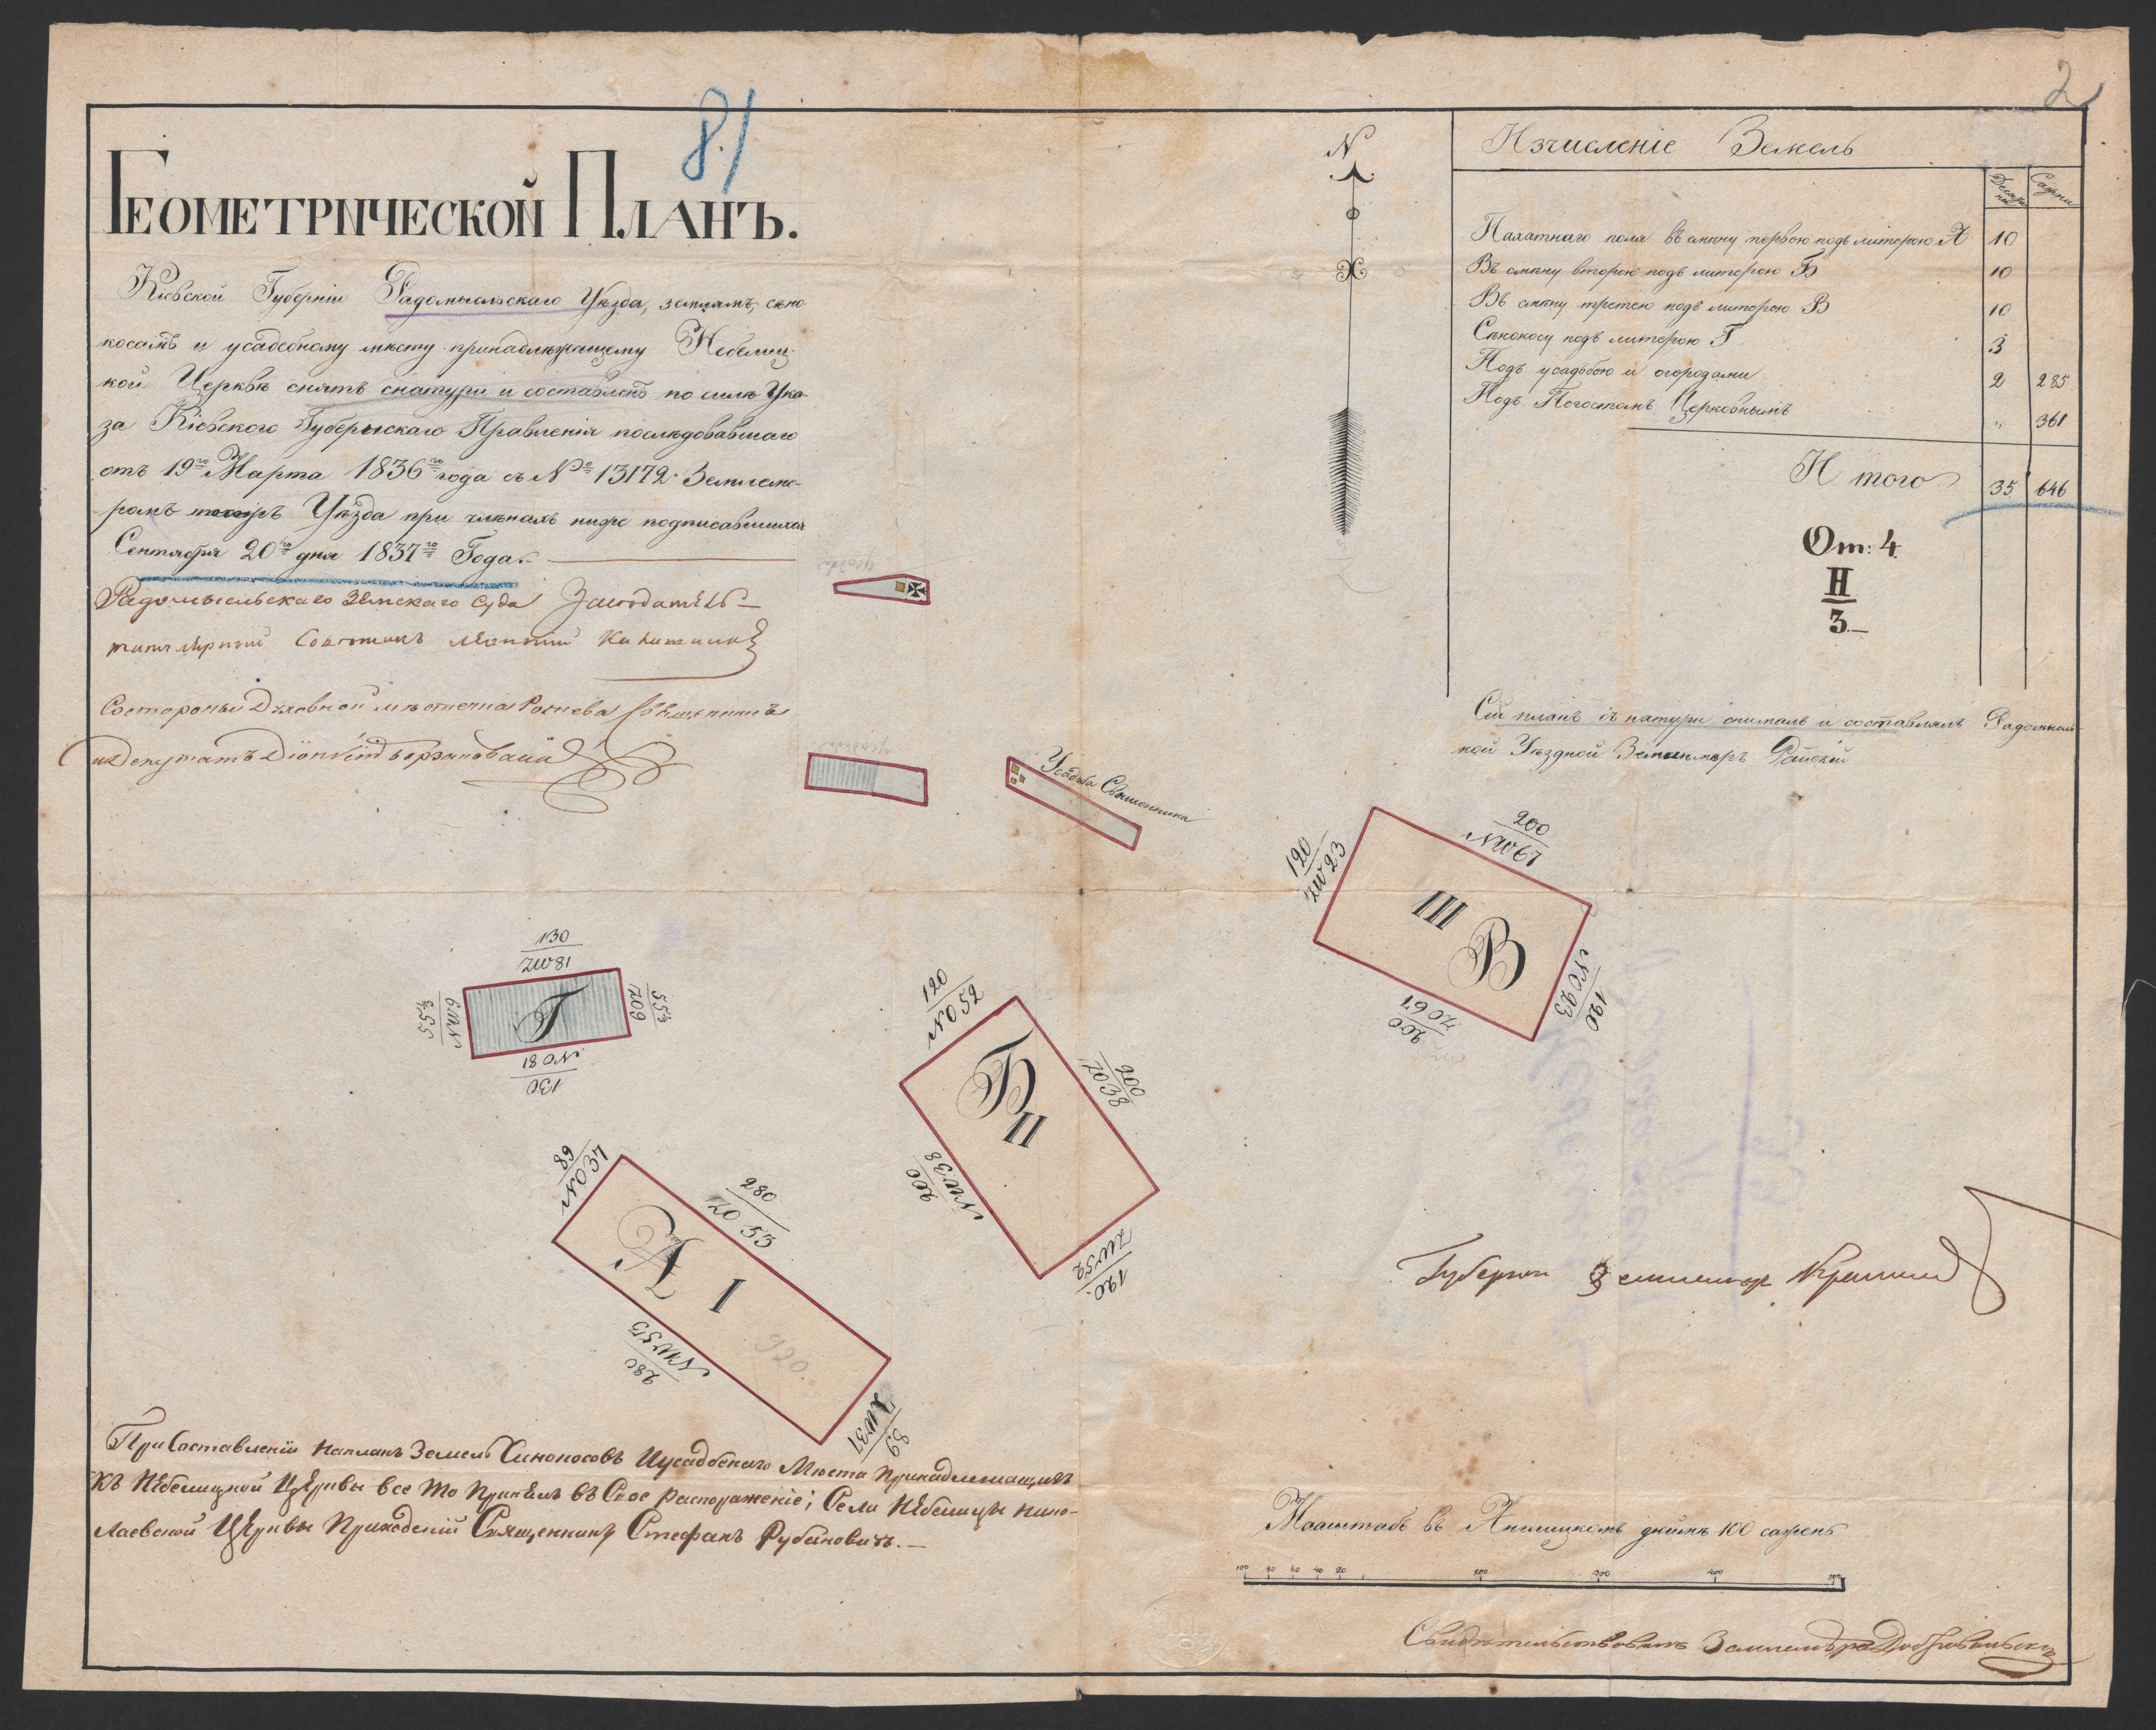 2
81
Геометрической Планъ.
Кіевской Губерніи Радомысльскаго Уѣзда, землямъ, сѣно-
косамъ и усадебному мѣсту принадлежащему Небелиц-
кой Церквѣ снятъ снатури и составленъ по силѣ Ука-
за Кіевского Губернскаго Правленія послѣдовавшаго
отъ 19го Марта 1836го года съ № 13172. Землеме-
ромъ Уѣзда при членахъ ниже подписавшихся
Сентября 20го дня 1837го Года.
Радомысльскаго Земскаго Суда Засѣдатель
титулярный Совѣтникъ
Состороны Духовной мѣстечка Рожева Священникъ
и Депутатъ
N
Изчисленіе Земель
Десятины
Сажни
Пахатнаго поля въ смѣну первою подъ литерою А 10
Въ смѣну второю подъ литерою Б 10
Въ смѣну третею подъ литерою В 10
Сѣнокосу подъ литерою Г 3
Подъ усадьбою и огородами 2 285
Подъ Погостомъ Церковнымъ " 361
И того 35 646
От: 4
II
3.
Сей планъ съ натури снималъ и составлялъ Радомысль-
кой Уѣздной Землемѣръ Райскій
усадьба
Усадьба Священника
200
NW 67
120
ZW 23
III
В
NO 23
120
ZO 67
200
130
ZW 81
Г
55⅔
ZO 9
NW 9
55⅔
NO 81
130
120
NO 52
Б
II
200
ZO 38
NW 38
200
ZW 52
120
89
NO 37
280
ZO 53
А
I
920
NW 53
280
ZW 37
89
Губерн Землемер
При Составленіи наплань Земель Синокосовъ Иусадбенаго Мѣста принадлежащихъ
Къ Небелицкой Церквы все то принялъ въ Свое распоряженіе; Села Небелицы Нико-
лаевской Церквы Приходскій Священникъ Стефанъ Рубановичъ.
Масштабъ въ Англицкомъ дюймѣ 100 сажень
100 80 60 40 20 200 300 400 500
Свидѣтельствовалъ Землемѣръ